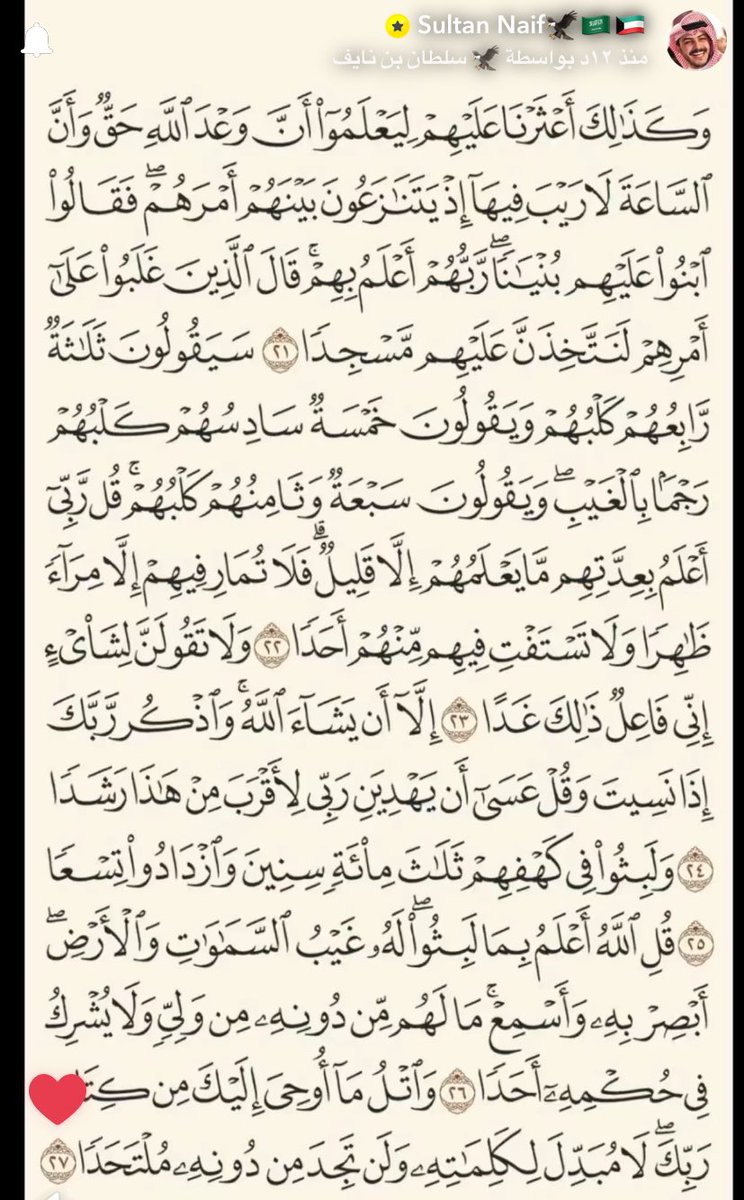 Sultan Naif🦅🇸🇦🇰🇼
منذ ١٢د بواسطة 🦅 سلطان بن نايف
وَكَذَٰلِكَ أَعْثَرْنَا عَلَيْهِمْ لِيَعْلَمُوٓا۟ أَنَّ وَعْدَ ٱللَّهِ حَقٌّ وَأَنَّ
ٱلسَّاعَةَ لَا رَيْبَ فِيهَآ إِذْ يَتَنَٰزَعُونَ بَيْنَهُمْ أَمْرَهُمْ ۖ فَقَالُوا۟
ٱبْنُوا۟ عَلَيْهِم بُنْيَٰنًا ۖ رَّبُّهُمْ أَعْلَمُ بِهِمْ ۚ قَالَ ٱلَّذِينَ غَلَبُوا۟ عَلَىٰٓ
أَمْرِهِمْ لَنَتَّخِذَنَّ عَلَيْهِم مَّسْجِدًا ٢١ سَيَقُولُونَ ثَلَٰثَةٌ
رَّابِعُهُمْ كَلْبُهُمْ وَيَقُولُونَ خَمْسَةٌ سَادِسُهُمْ كَلْبُهُمْ
رَجْمًۢا بِٱلْغَيْبِ ۖ وَيَقُولُونَ سَبْعَةٌ وَثَامِنُهُمْ كَلْبُهُمْ ۚ قُل رَّبِّىٓ
أَعْلَمُ بِعِدَّتِهِم مَّا يَعْلَمُهُمْ إِلَّا قَلِيلٌ ۗ فَلَا تُمَارِ فِيهِمْ إِلَّا مِرَآءً
ظَٰهِرًا وَلَا تَسْتَفْتِ فِيهِم مِّنْهُمْ أَحَدًا ٢٢ وَلَا تَقُولَنَّ لِشَا۟ىْءٍ
إِنِّى فَاعِلٌ ذَٰلِكَ غَدًا ٢٣ إِلَّآ أَن يَشَآءَ ٱللَّهُ ۚ وَٱذْكُر رَّبَّكَ
إِذَا نَسِيتَ وَقُلْ عَسَىٰٓ أَن يَهْدِيَنِ رَبِّى لِأَقْرَبَ مِنْ هَٰذَا رَشَدًا
٢٤ وَلَبِثُوا۟ فِى كَهْفِهِمْ ثَلَٰثَ مِا۟ئَةٍ سِنِينَ وَٱزْدَادُوا۟ تِسْعًا
٢٥ قُلِ ٱللَّهُ أَعْلَمُ بِمَا لَبِثُوا۟ ۖ لَهُۥ غَيْبُ ٱلسَّمَٰوَٰتِ وَٱلْأَرْضِ ۖ
أَبْصِرْ بِهِۦ وَأَسْمِعْ ۚ مَا لَهُم مِّن دُونِهِۦ مِن وَلِىٍّ وَلَا يُشْرِكُ
فِى حُكْمِهِۦٓ أَحَدًا ٢٦ وَٱتْلُ مَآ أُوحِىَ إِلَيْكَ مِن كِتَابِ
رَبِّكَ ۖ لَا مُبَدِّلَ لِكَلِمَٰتِهِۦ وَلَن تَجِدَ مِن دُونِهِۦ مُلْتَحَدًا ٢٧